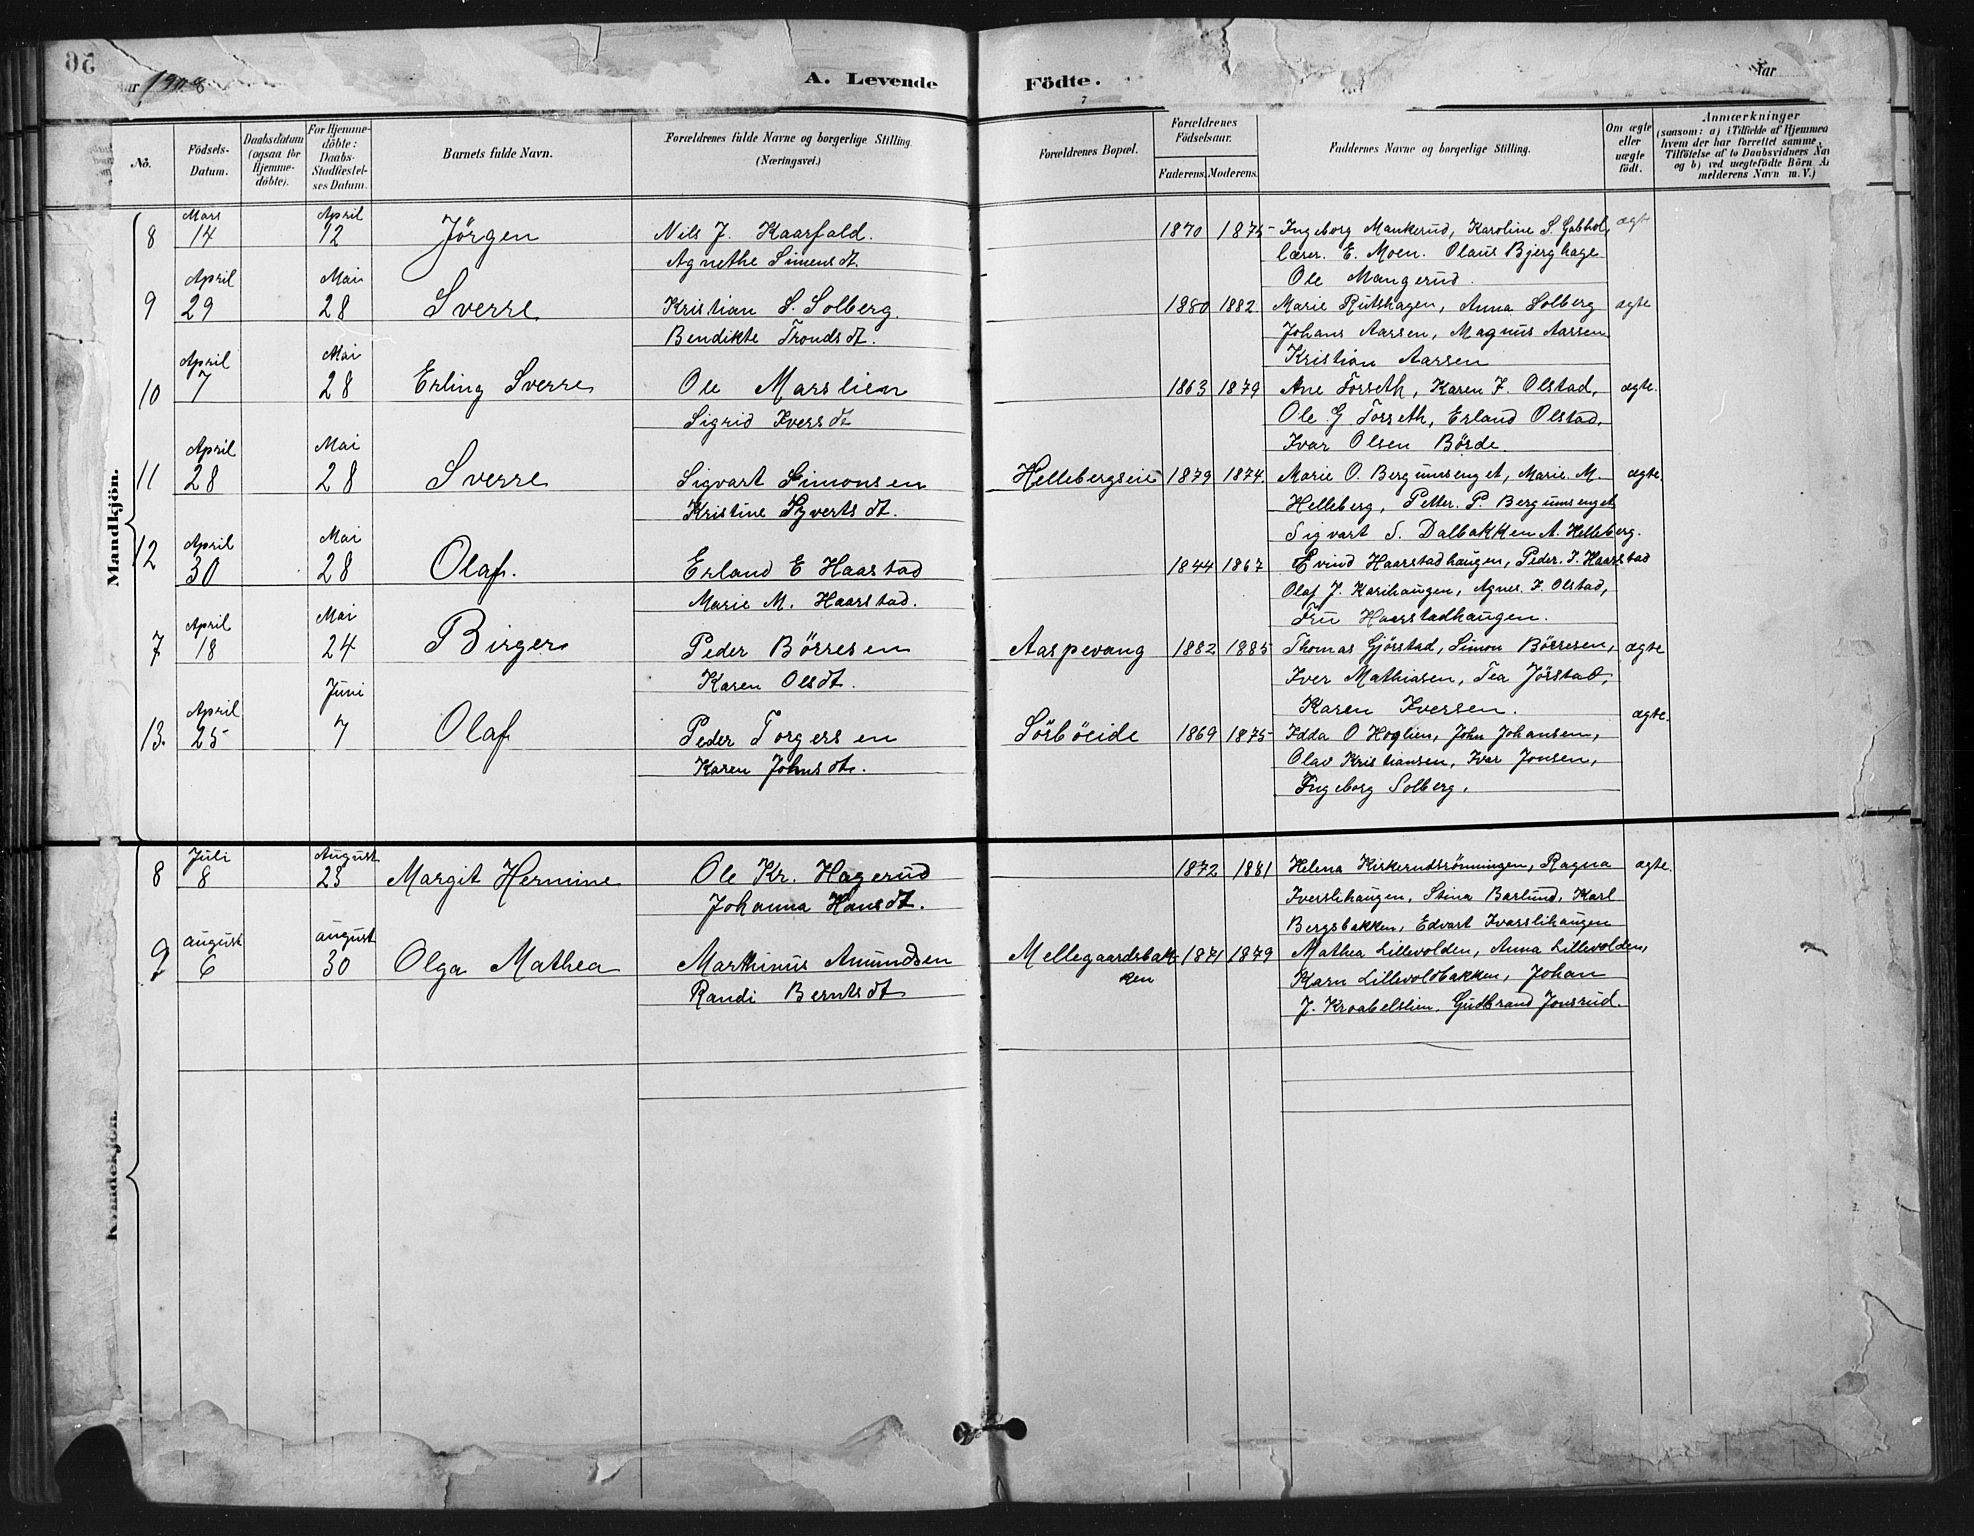 Aar 1908
A. Levende Födte.
Aar
No.
Födsels-Datum.
Daabsdatum (ogsaa for Hjemme-döbte).
For Hjemme-döbte: Daabs-Stadfæstel-ses Datum.
Barnets fulde Navn.
Forældrenes fulde Navne og borgerlige Stilling. (Næringsvei.)
Forældrenes Bopæl.
Forældrenes Födselsaar.
Faderens. Moderens.
Faddernes Navne og borgerlige Stilling.
Om ægte eller uægte födt.
Anmærkninger
(saasom: a) i Tilfælde af Hjemmed
hvem der har forrettet samme,
Tilföielse af to Daabsvidners Nav
og b) ved uægtefödte Börn A
melderens Navn m. V.)
Mandkjön.
8 Mars 14 April 12 Jörgen Nils J. Kaarfald. 1870 1875 Ingeborg Mankerud, Karoline S. Gabhol, ægte
Agnethe Simensdt. Lærer. E. Moen. Olaus Bjerghage
Ole Mangerud.
9 April 29 Mai 28 Sverre Kristian S. Solberg. 1880 1882 Marie Rutshagen, Anna Solberg ægte
Bendikte Trondsdt. Johans Aarsen, Magnus Aarsen
Kristian Aarsen
10 April 7 Mai 28 Erling Sverre Ole Marslien 1863 1879 Ane Forseth, Karen J. Olstad, ægte.
Sigrid Iversdt Ole G Forseth, Erland Olstad,
Ivar Olsen Börde.
11 April 28 Mai 28 Sverre Sigvart Simonsen Hellebergseie 1879 1874 Marie O. Bergumsenget, Marie M. ægte.
Kristine Syvertsdt. Helleberg, Petter. P. Bergumsenget
Sigvart S. Dalbakken A. Helleberg.
12 April 30 Mai 28 Olaf. Erland E Haarstad 1844 1867 Evind Haarstadhaugen, Peder. J. Haarstad
Marie M. Haarstad. Olaf J. Karihaugen, Agnes J. Olstad,
Fru Haarstadhaugen.
7 April 18 Mai 24 Birger Peder Börresen Aaspevang 1882 1885 Thomas Gjörstad, Simon Börresen, ægte
Karen Olsdt. Iver Mathiasen, Tea Jörstad,
Karen Iversen.
13. April 25 Juni 7 Olaf Peder Torgersen Sörböeide 1869 1875 Edda O Hoglien, John Johansen, ægte.
Karen Johnsdt. Olav Kristiansen, Ivar Jonsen,
Ingeborg Solberg.
Kvindekjön.
8 Juli 8 August 23 Margit Hermine Ole Kr. Hagerud 1872 1881 Helena Kirkerudsrönningen, Ragna ægte.
Johanna Hansdt. Iverslihaugen, Stina Barlund, Karl
Bergsbakken, Edvart Ivarslihaugen
9 august 6 august 30 Olga Mathea Marthinus Amundsen Mellegaardsbak 1871 1879 Mathea Lillevolden, Anna Lillevolden,
Randi Berntsdt ken Karn Lillevoldbakken, Johan
J. Kraabelslien, Gudbrand Jonsrud.